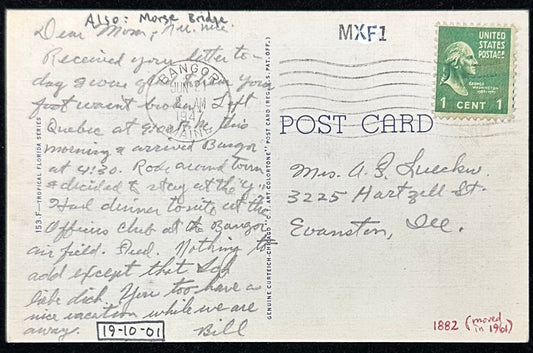 Also: Morse Bridge
Dear Mom,
Received your letter to-
day & was glad your
foot wasn't broken. Left
Quebec at this
morning & arrived Bangor
at 4:30. Rode around town
& decided to stay at the "Y".
Had dinner to-nite at the
Officers Club at the Bangor
air field. Nothing to
add except that I
like Have a
nice vacation while we are
away.
Bill
19-10-01
153-F—TROPICAL FLORIDA SERIES
GENUINE CURTEICH-CHICAGO "C.T. ART-COLORTONE" POST CARD (REG. U.S. PAT. OFF.)
BANGOR
JUN
AM
MAINE
MXF1
UNITED
STATES
POSTAGE
GEORGE
WASHINGTON
1 CENT 1
POST CARD
Mrs. A. G. Lueckw
3225 Hartzell St.
Evanston, Ill.
1882 (moved
in 1961)